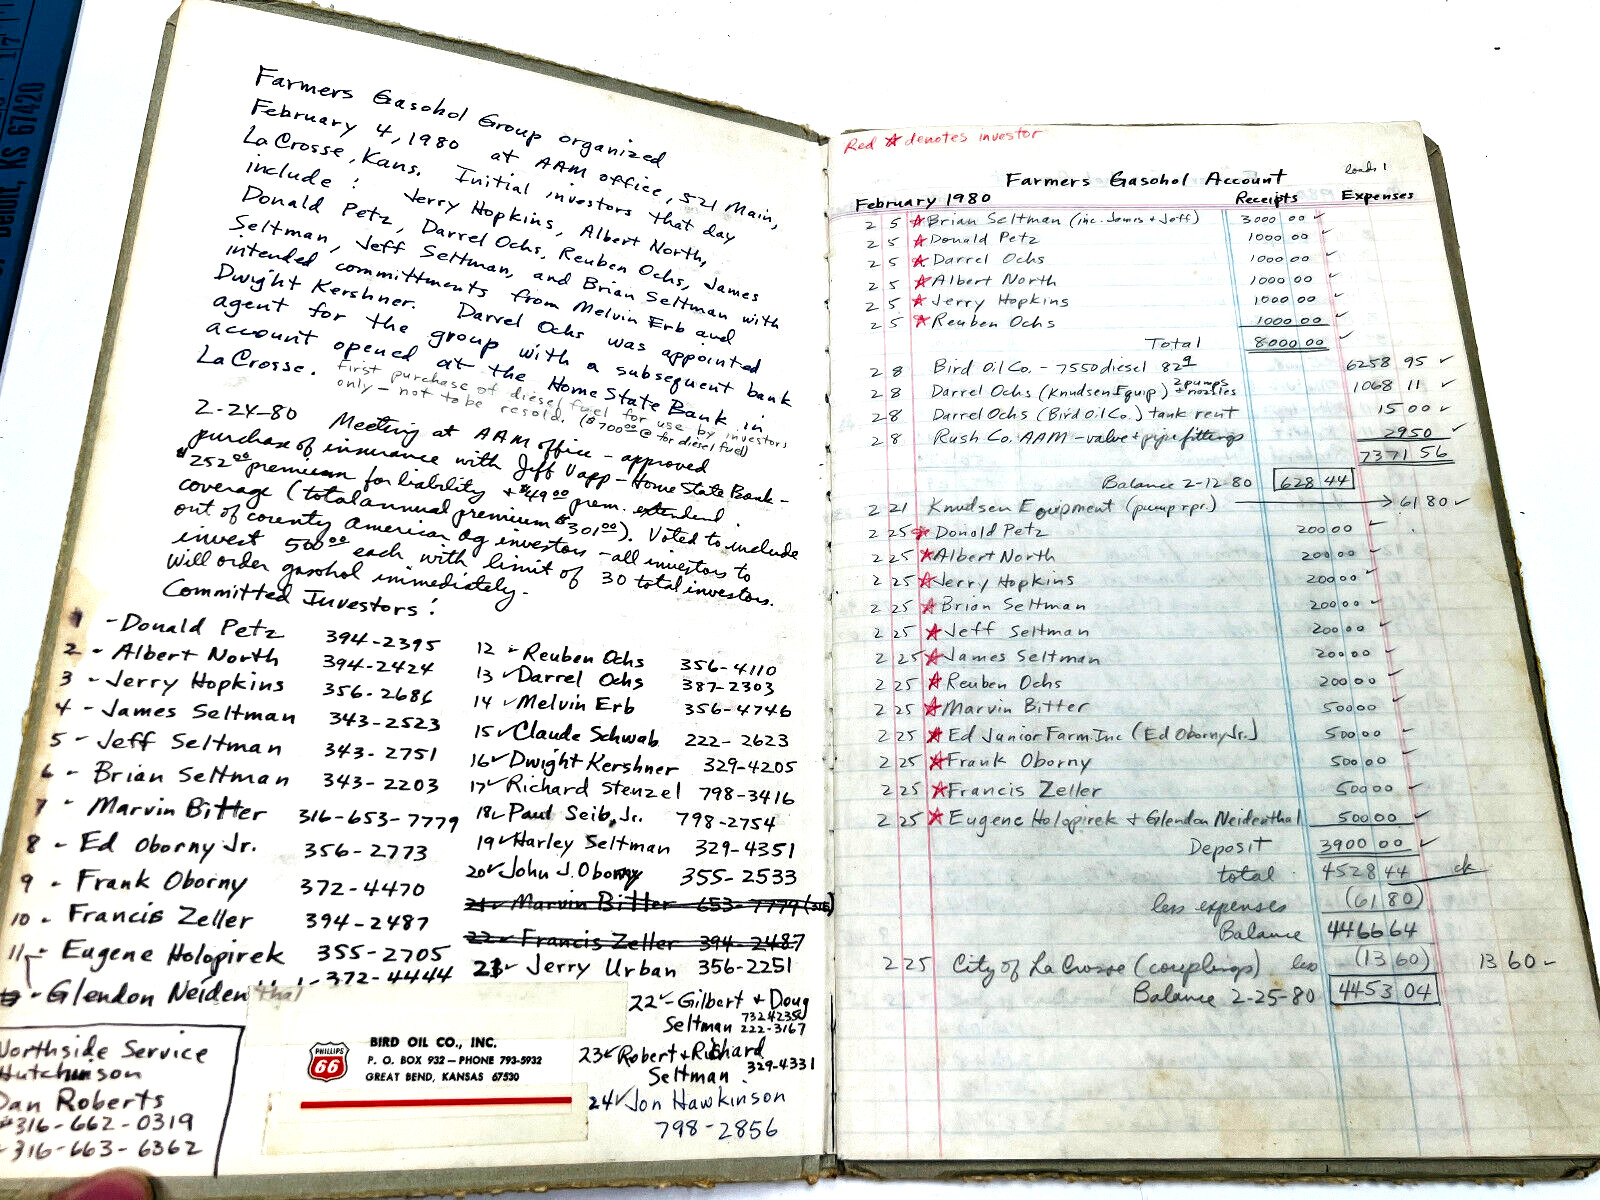 Beloit, KS 67420
17
Farmers Gasohol Group organized
February 4, 1980 at AAM office, 521 Main,
LaCrosse, Kans. Initial investors that day
include: Jerry Hopkins, Albert North,
Donald Petz, Darrel Ochs, Reuben Ochs, James
Seltman, Jeff Seltman, and Brian Seltman with
intended committments from Melvin Erb and
Dwight Kershner. Darrel Ochs was appointed
agent for the group with a subsequent bank
account opened at the Home State Bank in
LaCrosse. First purchase of diesel fuel for use by investors
only - not to be resold. ($700⁰⁰ @ for diesel fuel)
2-24-80 Meeting at AAM office - approved
purchase of insurance with Jeff Vapp - Home State Bank -
$252⁰⁰ premium for liability + $49⁰⁰ prem. extend
coverage (total annual premium $301⁰⁰). Voted to include
out of county American Ag investors - all investors to
invest 500⁰⁰ each with limit of 30 total investors.
Will order gasohol immediately.
Committed Investors:
1 - Donald Petz 394-2395
2 - Albert North 394-2424
3 - Jerry Hopkins 356-2686
4 - James Seltman 343-2523
5 - Jeff Seltman 343-2751
6 - Brian Seltman 343-2203
7 - Marvin Bitter 316-653-7779
8 - Ed Oborny Jr. 356-2773
9 - Frank Oborny 372-4470
10 - Francis Zeller 394-2487
11 - Eugene Holopirek 355-2705
- Glendon Neidenthal 372-4444
12 - Reuben Ochs 356-4110
13 ✓ Darrel Ochs 387-2303
14 ✓ Melvin Erb 356-4746
15 ✓ Claude Schwab 222-2623
16 ✓ Dwight Kershner 329-4205
17 ✓ Richard Stenzel 798-3416
18 ✓ Paul Seib, Jr. 798-2754
19 ✓ Harley Seltman 329-4351
20 ✓ John J. Oborny 355-2533
21 - Marvin Bitter 653-7779 (316)
22 - Francis Zeller 394-2487
21 ✓ Jerry Urban 356-2251
22 ✓ - Gilbert + Doug
Seltman 222-3167
23 ✓ Robert + Richard
Seltman. 329-4331
24 ✓ Jon Hawkinson
798-2856
Northside Service
Hutchinson
Dan Roberts
316-662-0319
316-663-6362
PHILLIPS
66
BIRD OIL CO., INC.
P. O. BOX 932 — PHONE 793-5932
GREAT BEND, KANSAS 67530
Red ☆ denotes investor
loads 1
Farmers Gasohol Account
February 1980 Receipts Expenses
2 5 ☆ Brian Seltman (inc. James + Jeff) 3000 00 ✓
2 5 ☆ Donald Petz 1000 00 ✓
2 5 ☆ Darrel Ochs 1000 00 ✓
2 5 ☆ Albert North 1000 00 ✓
2 5 ☆ Jerry Hopkins 1000 00 ✓
2 5 ☆ Reuben Ochs 1000 00 ✓
Total 8000 00 ✓
2 8 Bird Oil Co. - 7550 diesel 82⁹ 6258 95 ✓
2 8 Darrel Ochs (Knudsen Equip) 2 pumps + nozzles 1068 11 ✓
2 8 Darrel Ochs (Bird Oil Co.) tank rent 15 00 ✓
2 8 Rush Co. AAM - valve + pipe fittings 29 50 ✓
7371 56
Balance 2-12-80 628 44
2 21 Knudsen Equipment (pump rpr.) → 61 80 ✓
2 25 ☆ Donald Petz 200 00 ✓
2 25 ☆ Albert North 200 00 ✓
2 25 ☆ Jerry Hopkins 200 00 ✓
2 25 ☆ Brian Seltman 200 00 ✓
2 25 ☆ Jeff Seltman 200 00 ✓
2 25 ☆ James Seltman 200 00 ✓
2 25 ☆ Reuben Ochs 200 00 ✓
2 25 ☆ Marvin Bitter 500 00 ✓
2 25 ☆ Ed Junior Farm Inc (Ed Oborny Jr.) 500 00 ✓
2 25 ☆ Frank Oborny 500 00 ✓
2 25 ☆ Francis Zeller 500 00 ✓
2 25 ☆ Eugene Holopirek + Glendon Neidenthal 500 00 ✓
Deposit 3900 00 ✓
total 4528 44 ck
less expenses (61 80)
Balance 4466 64
2 25 City of LaCrosse (couplings) less (13 60) 13 60 ✓
Balance 2-25-80 4453 04